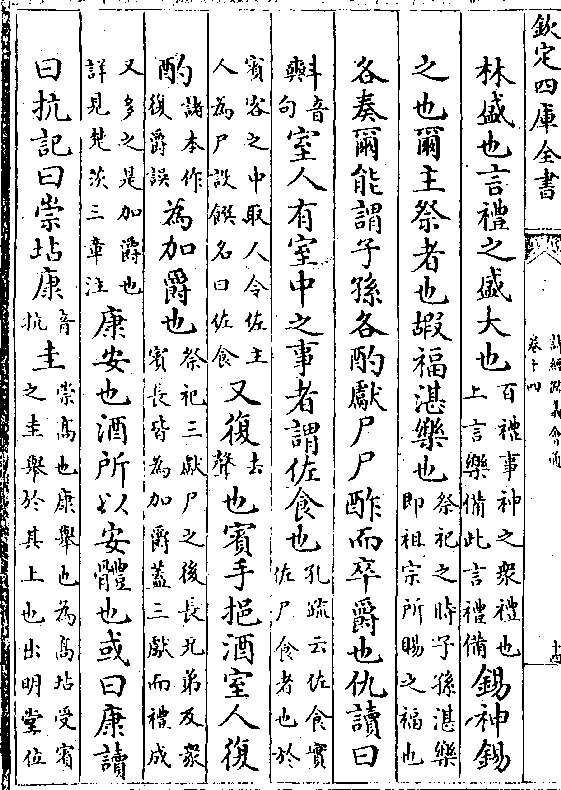 欽定四庫全書
詩經疏義會通
卷十四
十四
林盛也言禮之盛大也百禮事神之衆禮也上言樂備此言禮備錫神錫
之也爾主祭者也嘏福湛樂也祭祀之時子孫湛樂即祖宗所賜之福也
各奏爾能謂子孫各酌獻尸尸酢而卒爵也仇讀曰
㪺音句室人有室中之事者謂佐食也孔疏云佐食實佐尸食者也於
賓客之中取人令佐主人為尸設饌名曰佐食又復去聲也賓手挹酒室人復
酌諸本作復爵誤為加爵也祭祀三獻尸之後長兄弟及衆賓長皆為加爵蓋三獻而禮成
又多之是加爵也詳見楚茨三章注康安也酒所以安體也或曰康讀
曰抗記曰崇坫康音抗圭崇高也康舉也為高坫受賓之圭舉於其上也出明堂位